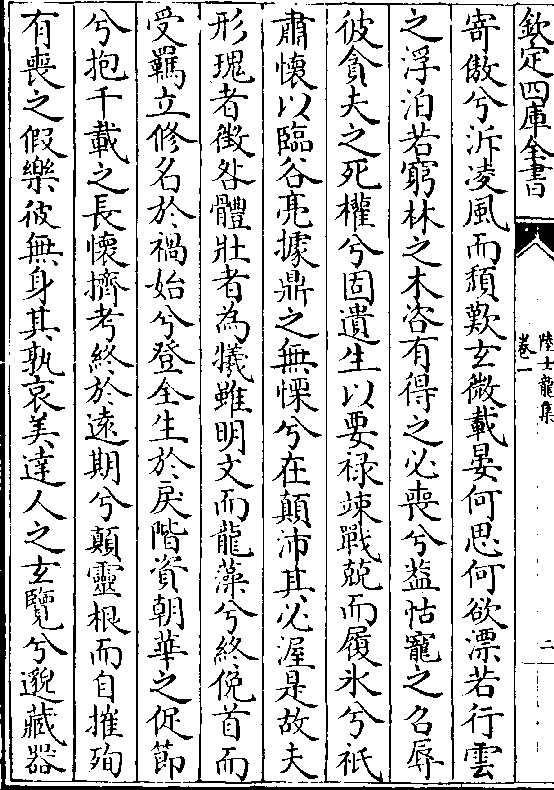 欽定四庫全書
陸士龍集
卷一
二
寄傲兮泝凌風而頽歎玄微載晏何思何欲漂若行雲
之浮泊若窮林之木咨有得之必喪兮葢怙寵之名辱
彼貪夫之死權兮固遺生以要禄竦戰兢而履氷兮祇
肅懷以臨谷亮據鼎之無慄兮在顛沛其必渥是故夫
形瑰者徵咎體壯者為犧雖明文而龍藻兮終俛首而
受羈立修名於禍始兮登全生於戾階資朝華之促節
兮抱千載之長懷擠考終於遠期兮顛靈根而自摧殉
有喪之假樂彼無身其孰哀美達人之玄覽兮邈藏器